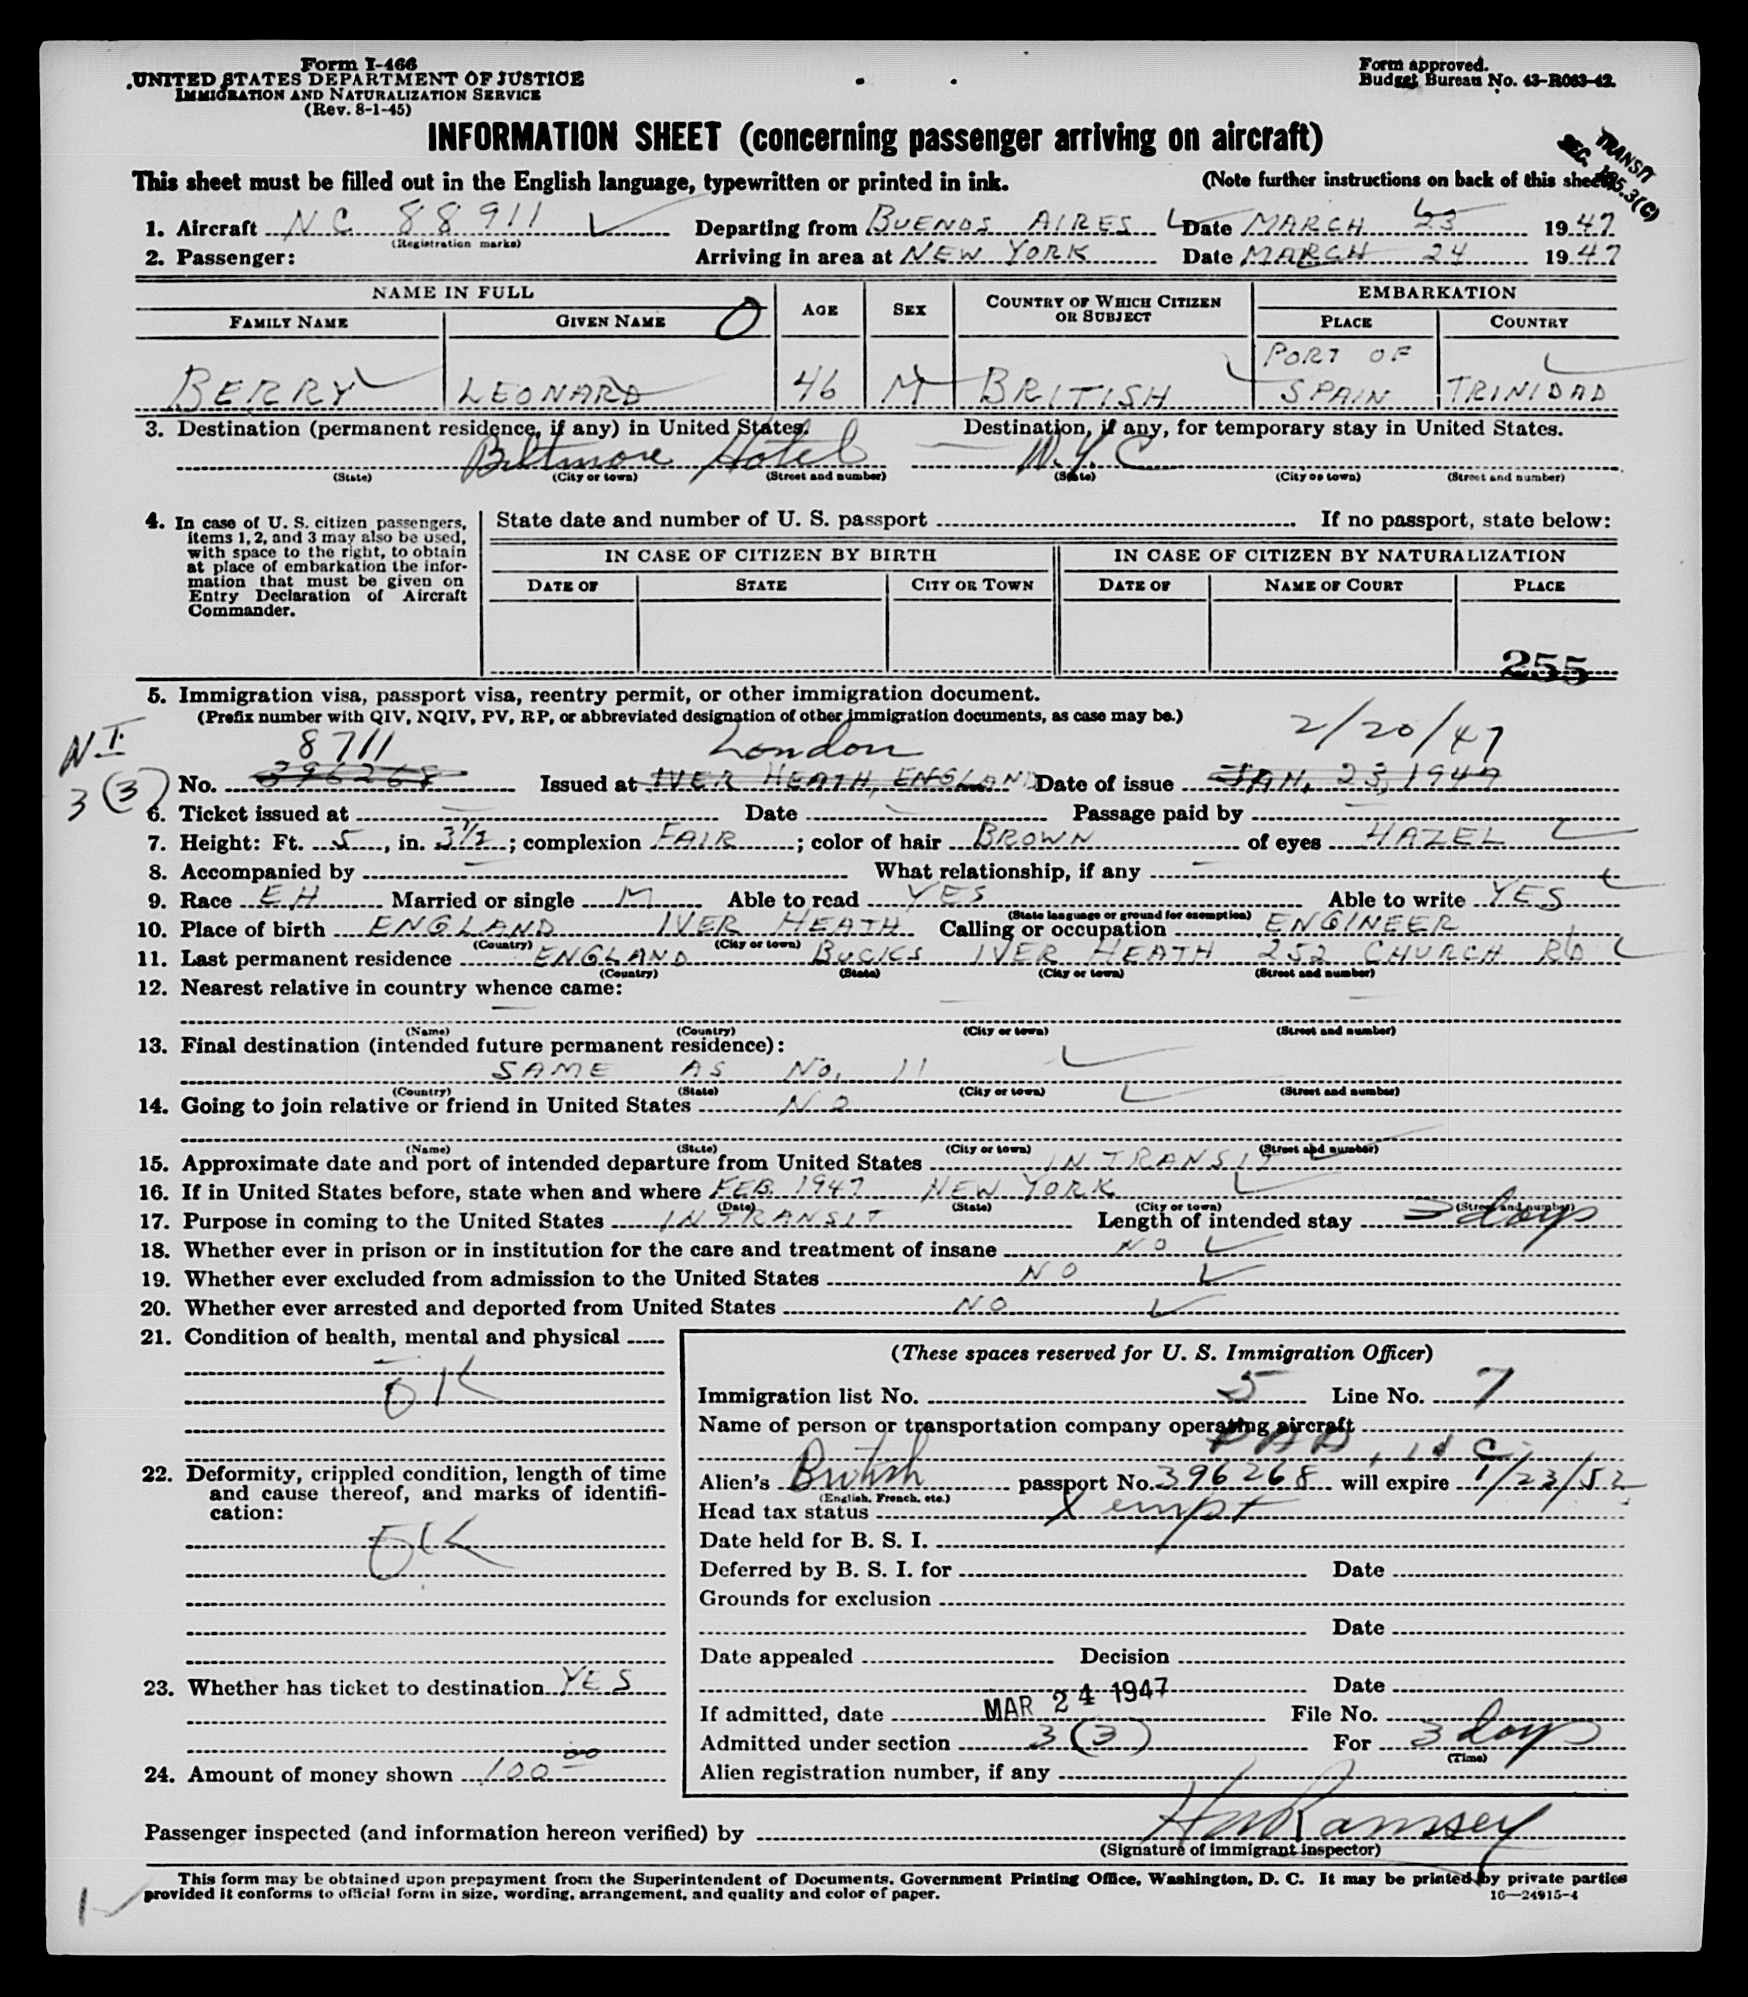 Form I-466
UNITED STATES DEPARTMENT OF JUSTICE
IMMIGRATION AND NATURALIZATION SERVICE
(Rev. 8-1-45)
Form approved.
Budget Bureau No. 43-R083-42.
INFORMATION SHEET (concerning passenger arriving on aircraft)
TRANSIT
SEC. 125.3(C)
This sheet must be filled out in the English language, typewritten or printed in ink. (Note further instructions on back of this sheet)
1. Aircraft NC 88911 Departing from BUENOS AIRES Date MARCH 23 1947
(Registration marks)
2. Passenger: Arriving in area at NEW YORK Date MARCH 24 1947
NAME IN FULL AGE SEX COUNTRY OF WHICH CITIZEN OR SUBJECT EMBARKATION
FAMILY NAME GIVEN NAME O PLACE COUNTRY
BERRY LEONARD 46 M BRITISH PORT OF SPAIN TRINIDAD
3. Destination (permanent residence, if any) in United States. Destination, if any, for temporary stay in United States.
Biltmore Hotel N.Y.C
(State) (City or town) (Street and number) (State) (City or town) (Street and number)
4. In case of U. S. citizen passengers, items 1, 2, and 3 may also be used, with space to the right, to obtain at place of embarkation the information that must be given on Entry Declaration of Aircraft Commander.
State date and number of U. S. passport If no passport, state below:
IN CASE OF CITIZEN BY BIRTH IN CASE OF CITIZEN BY NATURALIZATION
DATE OF STATE CITY OR TOWN DATE OF NAME OF COURT PLACE
255
5. Immigration visa, passport visa, reentry permit, or other immigration document.
(Prefix number with QIV, NQIV, PV, RP, or abbreviated designation of other immigration documents, as case may be.)
NI 8711 London 2/20/47
3(3) No. 396268 Issued at IVER HEATH, ENGLAND Date of issue JAN. 23, 1947
6. Ticket issued at Date Passage paid by
7. Height: Ft. 5, in. 3 1/2; complexion FAIR; color of hair BROWN of eyes HAZEL
8. Accompanied by What relationship, if any
9. Race EH Married or single M Able to read YES Able to write YES
(State language or ground for exemption)
10. Place of birth ENGLAND IVER HEATH Calling or occupation ENGINEER
(Country) (City or town)
11. Last permanent residence ENGLAND BUCKS IVER HEATH 252 CHURCH RD
(Country) (State) (City or town) (Street and number)
12. Nearest relative in country whence came:
(Name) (Country) (City or town) (Street and number)
13. Final destination (intended future permanent residence):
SAME AS NO. 11
(Country) (State) (City or town) (Street and number)
14. Going to join relative or friend in United States NO
(Name) (State) (City or town) (Street and number)
15. Approximate date and port of intended departure from United States IN TRANSIT
16. If in United States before, state when and where FEB. 1947 NEW YORK
(Date) (State) (City or town) (Street and number)
17. Purpose in coming to the United States IN TRANSIT Length of intended stay 3 days
18. Whether ever in prison or in institution for the care and treatment of insane NO
19. Whether ever excluded from admission to the United States NO
20. Whether ever arrested and deported from United States NO
21. Condition of health, mental and physical
OK
22. Deformity, crippled condition, length of time and cause thereof, and marks of identification:
OK
23. Whether has ticket to destination YES
24. Amount of money shown 100 00
(These spaces reserved for U. S. Immigration Officer)
Immigration list No. 5 Line No. 7
Name of person or transportation company operating aircraft
PAA, Inc.
Alien's British passport No. 396268 will expire 1/23/52
(English, French, etc.)
Head tax status Xempt
Date held for B. S. I.
Deferred by B. S. I. for Date
Grounds for exclusion
Date
Date appealed Decision
Date
If admitted, date MAR 24 1947 File No.
Admitted under section 3(3) For 3 days
(Time)
Alien registration number, if any
Passenger inspected (and information hereon verified) by Ramsey
(Signature of immigrant inspector)
This form may be obtained upon prepayment from the Superintendent of Documents, Government Printing Office, Washington, D. C. It may be printed by private parties
provided it conforms to official form in size, wording, arrangement, and quality and color of paper.
16—24915-4